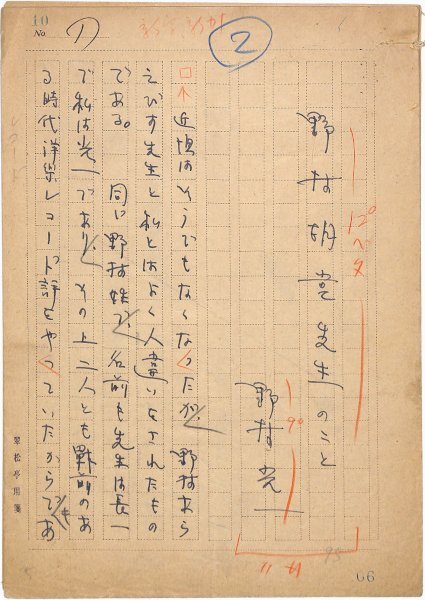 10
No.
1)
2
野村胡堂先生のこと
12ベタ
野村光一
9°
近頃はそうでもなくなったが、野村あら
えびす先生と私とはよく人違いをされたもの
である。同じ野村姓で、名前も先生は長一
で私は光一であり、その上二人とも戦前のあ
る時代洋楽レコード評をやっていたからであ
翠松亭用箋
66